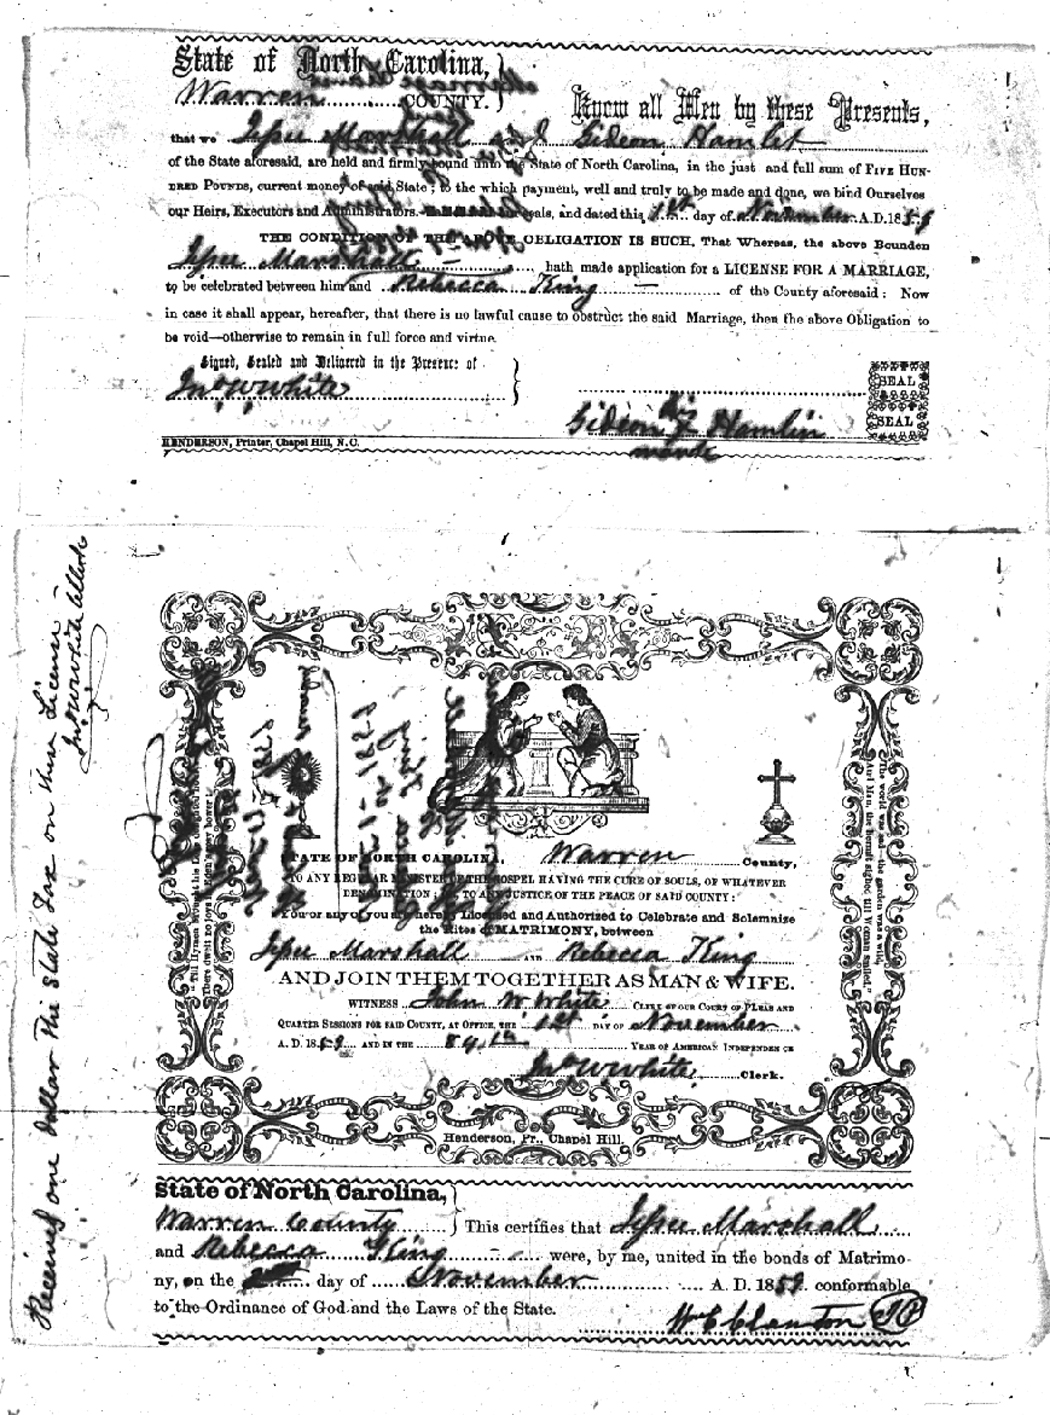 State of North Carolina,
Warren COUNTY.
Know all Men by these Presents,
that we Jesse Marshall and Gideon Hamlet
of the State aforesaid, are held and firmly bound unto the State of North Carolina, in the just and full sum of FIVE HUN-
DRED POUNDS, current money of said State; to the which payment, well and truly to be made and done, we bind Ourselves
our Heirs, Executors and Administrators. seals, and dated this 1st day of November A.D. 1859
THE CONDITION OF THE ABOVE OBLIGATION IS SUCH, That Whereas, the above Bounden
Jesse Marshall hath made application for a LICENSE FOR A MARRIAGE,
to be celebrated between him and Rebecca King of the County aforesaid: Now
in case it shall appear, hereafter, that there is no lawful cause to obstruct the said Marriage, then the above Obligation to
be void—otherwise to remain in full force and virtue.
Signed, Sealed and Delivered in the Presence of
Jno W White
SEAL
his
Gideon X Hamlin
mark
SEAL
HENDERSON, Printer, Chapel Hill, N.C.
Received one dollar the State Tax on this License
Jno W White Clerk
"Till Hymen brought his
There dwelt no joys in Eden's rosy bower!
The world was sad—the garden was a wild,
And Man, the hermit sighed till Woman smiled."
STATE OF NORTH CAROLINA, Warren County,
TO ANY REGULAR MINISTER OF THE GOSPEL HAVING THE CURE OF SOULS, OF WHATEVER
DENOMINATION; OR, TO ANY JUSTICE OF THE PEACE OF SAID COUNTY:
You or any of you are hereby Licensed and Authorized to Celebrate and Solemnize
the Rites of MATRIMONY, between
Jesse Marshall AND Rebecca King
AND JOIN THEM TOGETHER AS MAN & WIFE.
WITNESS John W White CLERK OF OUR COURT OF PLEAS AND
QUARTER SESSIONS FOR SAID COUNTY, AT OFFICE, THE 1st DAY OF November
A. D. 1859 AND IN THE 84th YEAR OF AMERICAN INDEPENDENCE
Jno W White Clerk.
Henderson, Pr., Chapel Hill.
State of North Carolina,
Warren County This certifies that Jesse Marshall
and Rebecca King were, by me, united in the bonds of Matrimo-
ny, on the day of November A. D. 1859 conformable
to the Ordinance of God and the Laws of the State.
Wm C Clanton JP